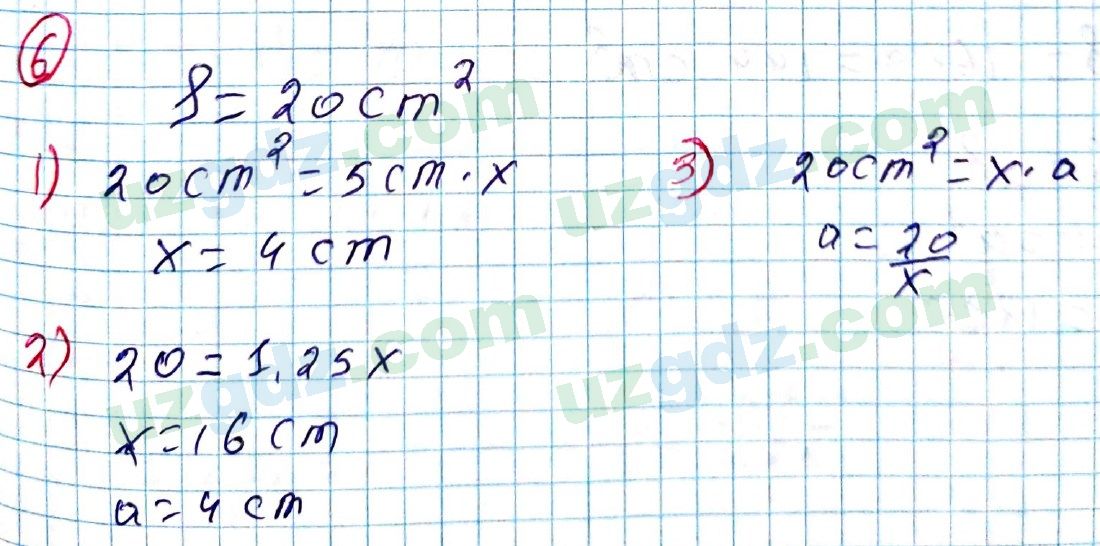 6
S = 20 cm²
1) 20 cm² = 5 cm · x
x = 4 cm
2) 20 = 1,25x
x = 16 cm
a = 4 cm
3) 20 cm² = x · a
a = 20/x
uzgdz.com
uzgdz.com
uzgdz.com
uzgdz.com